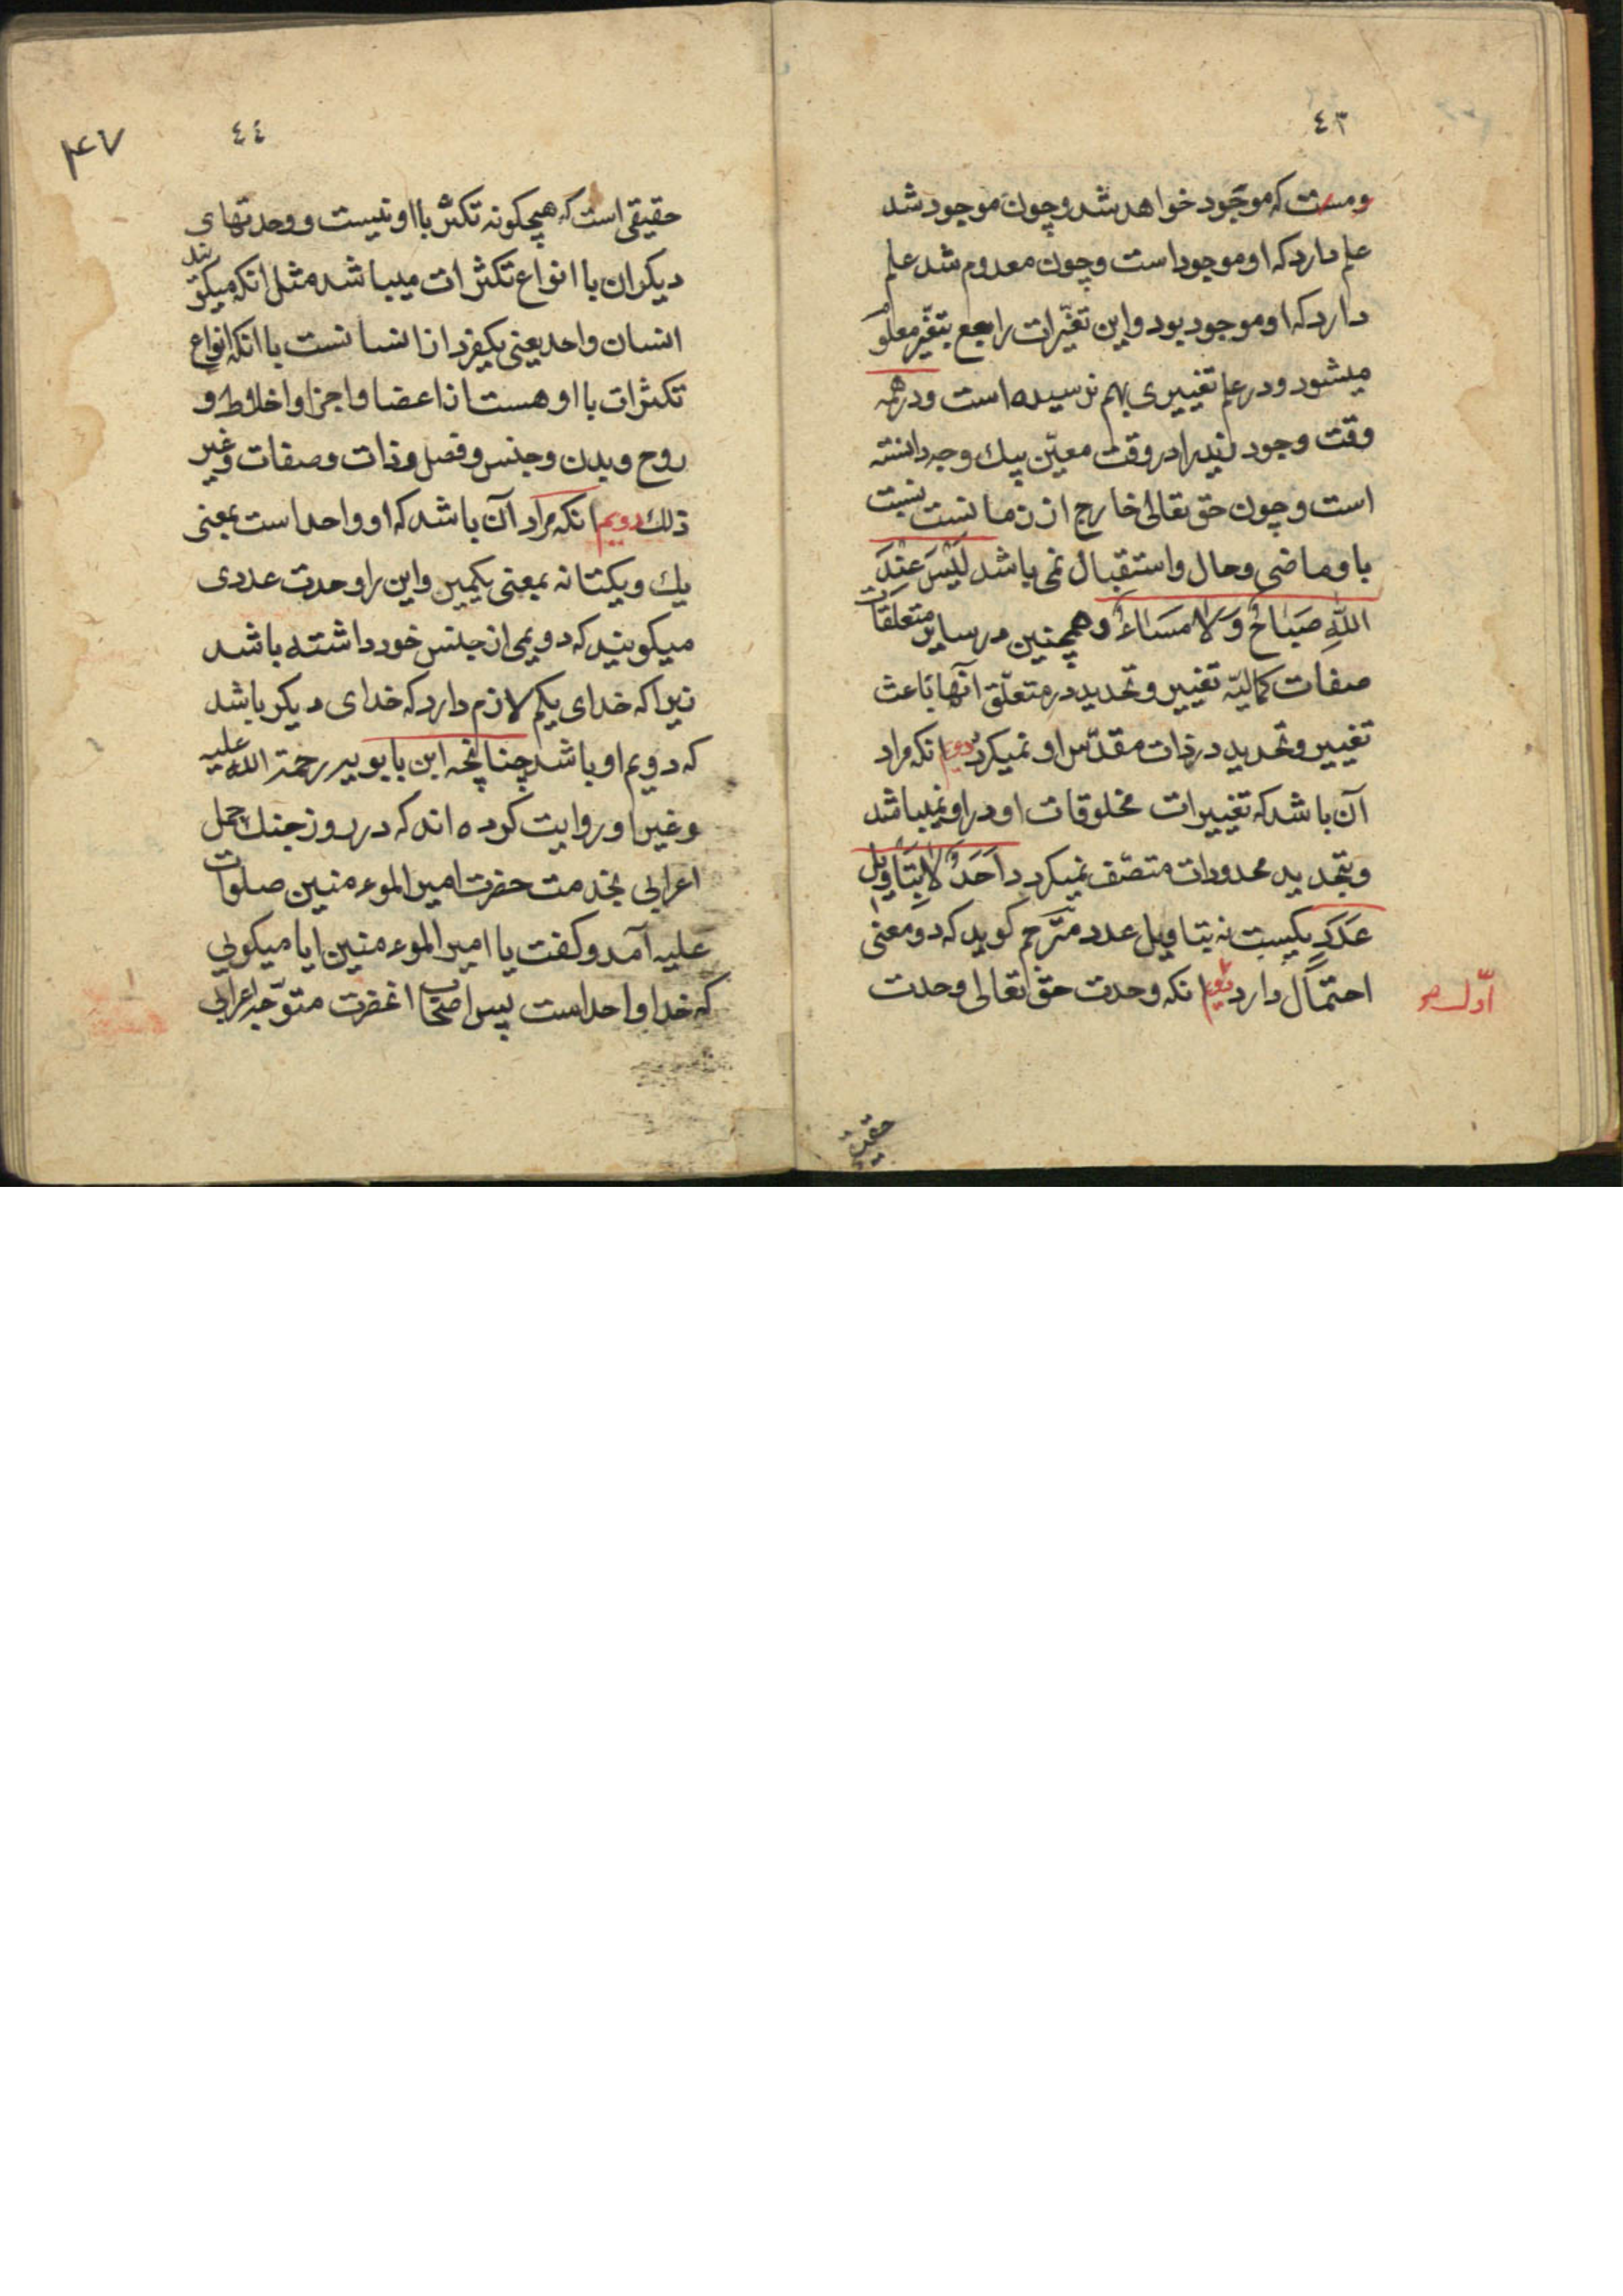 ٤٣
ومست که موجود خواهد شد و چون موجود شد
علم دارد که او موجود است و چون معدوم شد علم
دارد که او موجود بود و این تغیّرات راجع بتغیّر معلوم
میشود و در علم تغییری بهم نرسیده است و در همه
وقت وجود زید را در وقت معیّن بیك وجه دانسته
است و چون حق تعالی خارج از زمانست نسبت
باو ماضی و حال و استقبال نمی باشد لَیْسَ عِنْدَ
اللّهِ صَبَاحٌ وَ لَا مَسَاءٌ و همچنین در سایر متعلقات
صفات کمالیّه تغییر و تحدید در متعلّق آنها باعث
تغییر و تحدید در ذات مقدّس او نمیکردد دویم انکه مراد
آن باشد که تغییرات مخلوقات او در او نمیباشد
و بتحدید محدودات متصّف نمیکردد اَحَدٌ لَا بِتَاْوِیلِ
عَدَدٍ یکیست نه بتاویل عدد مترجم کوید که دو معنی
احتمال دارد دویم انکه وحدت حق تعالی وحدت
اوّل صح
حقیقی
٤٤
۴۷
حقیقی است که هیچکونه تکثّر با او نیست و وحدتهای
دیکران با انواع تکثرات میباشد مثل انکه میکویند
انسان واحد یعنی یکفرد از انسانست با انکه انواع
تکثرات با او هست از اعضا و اجزا و اخلاط و
روح و بدن و جنس و فصل و ذات و صفات و غیر
ذلك دویم انکه مراد آن باشد که او واحد است بمعنی
یك و یکتا نه بمعنی یکمین و این را وحدت عددی
میکویند که دویمی از جنس خود داشته باشد
زیرا که خدای یکم لازم دارد که خدای دیکر باشد
که دویم او باشد چنانچه ابن بابویه رحمة اللّه علیه
و غیر او روایت کرده اند که در روز جنك جمل
اعرابی بخدمت حضرت امیر الموءمنین صلوات
علیه آمد و کفت یا امیر الموءمنین ایا میکویی
که خدا واحد است پس اصحاب انحضرت متوّجه اعرابی